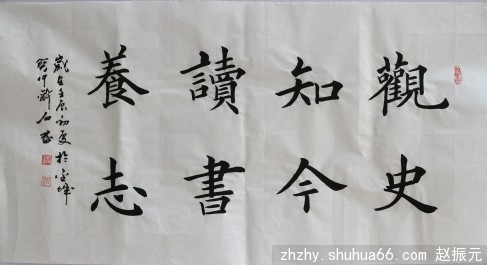 觀史
知今
讀書
養志
歲在壬辰初夏於宝城
zhzhy.shuhua66.com 赵振元